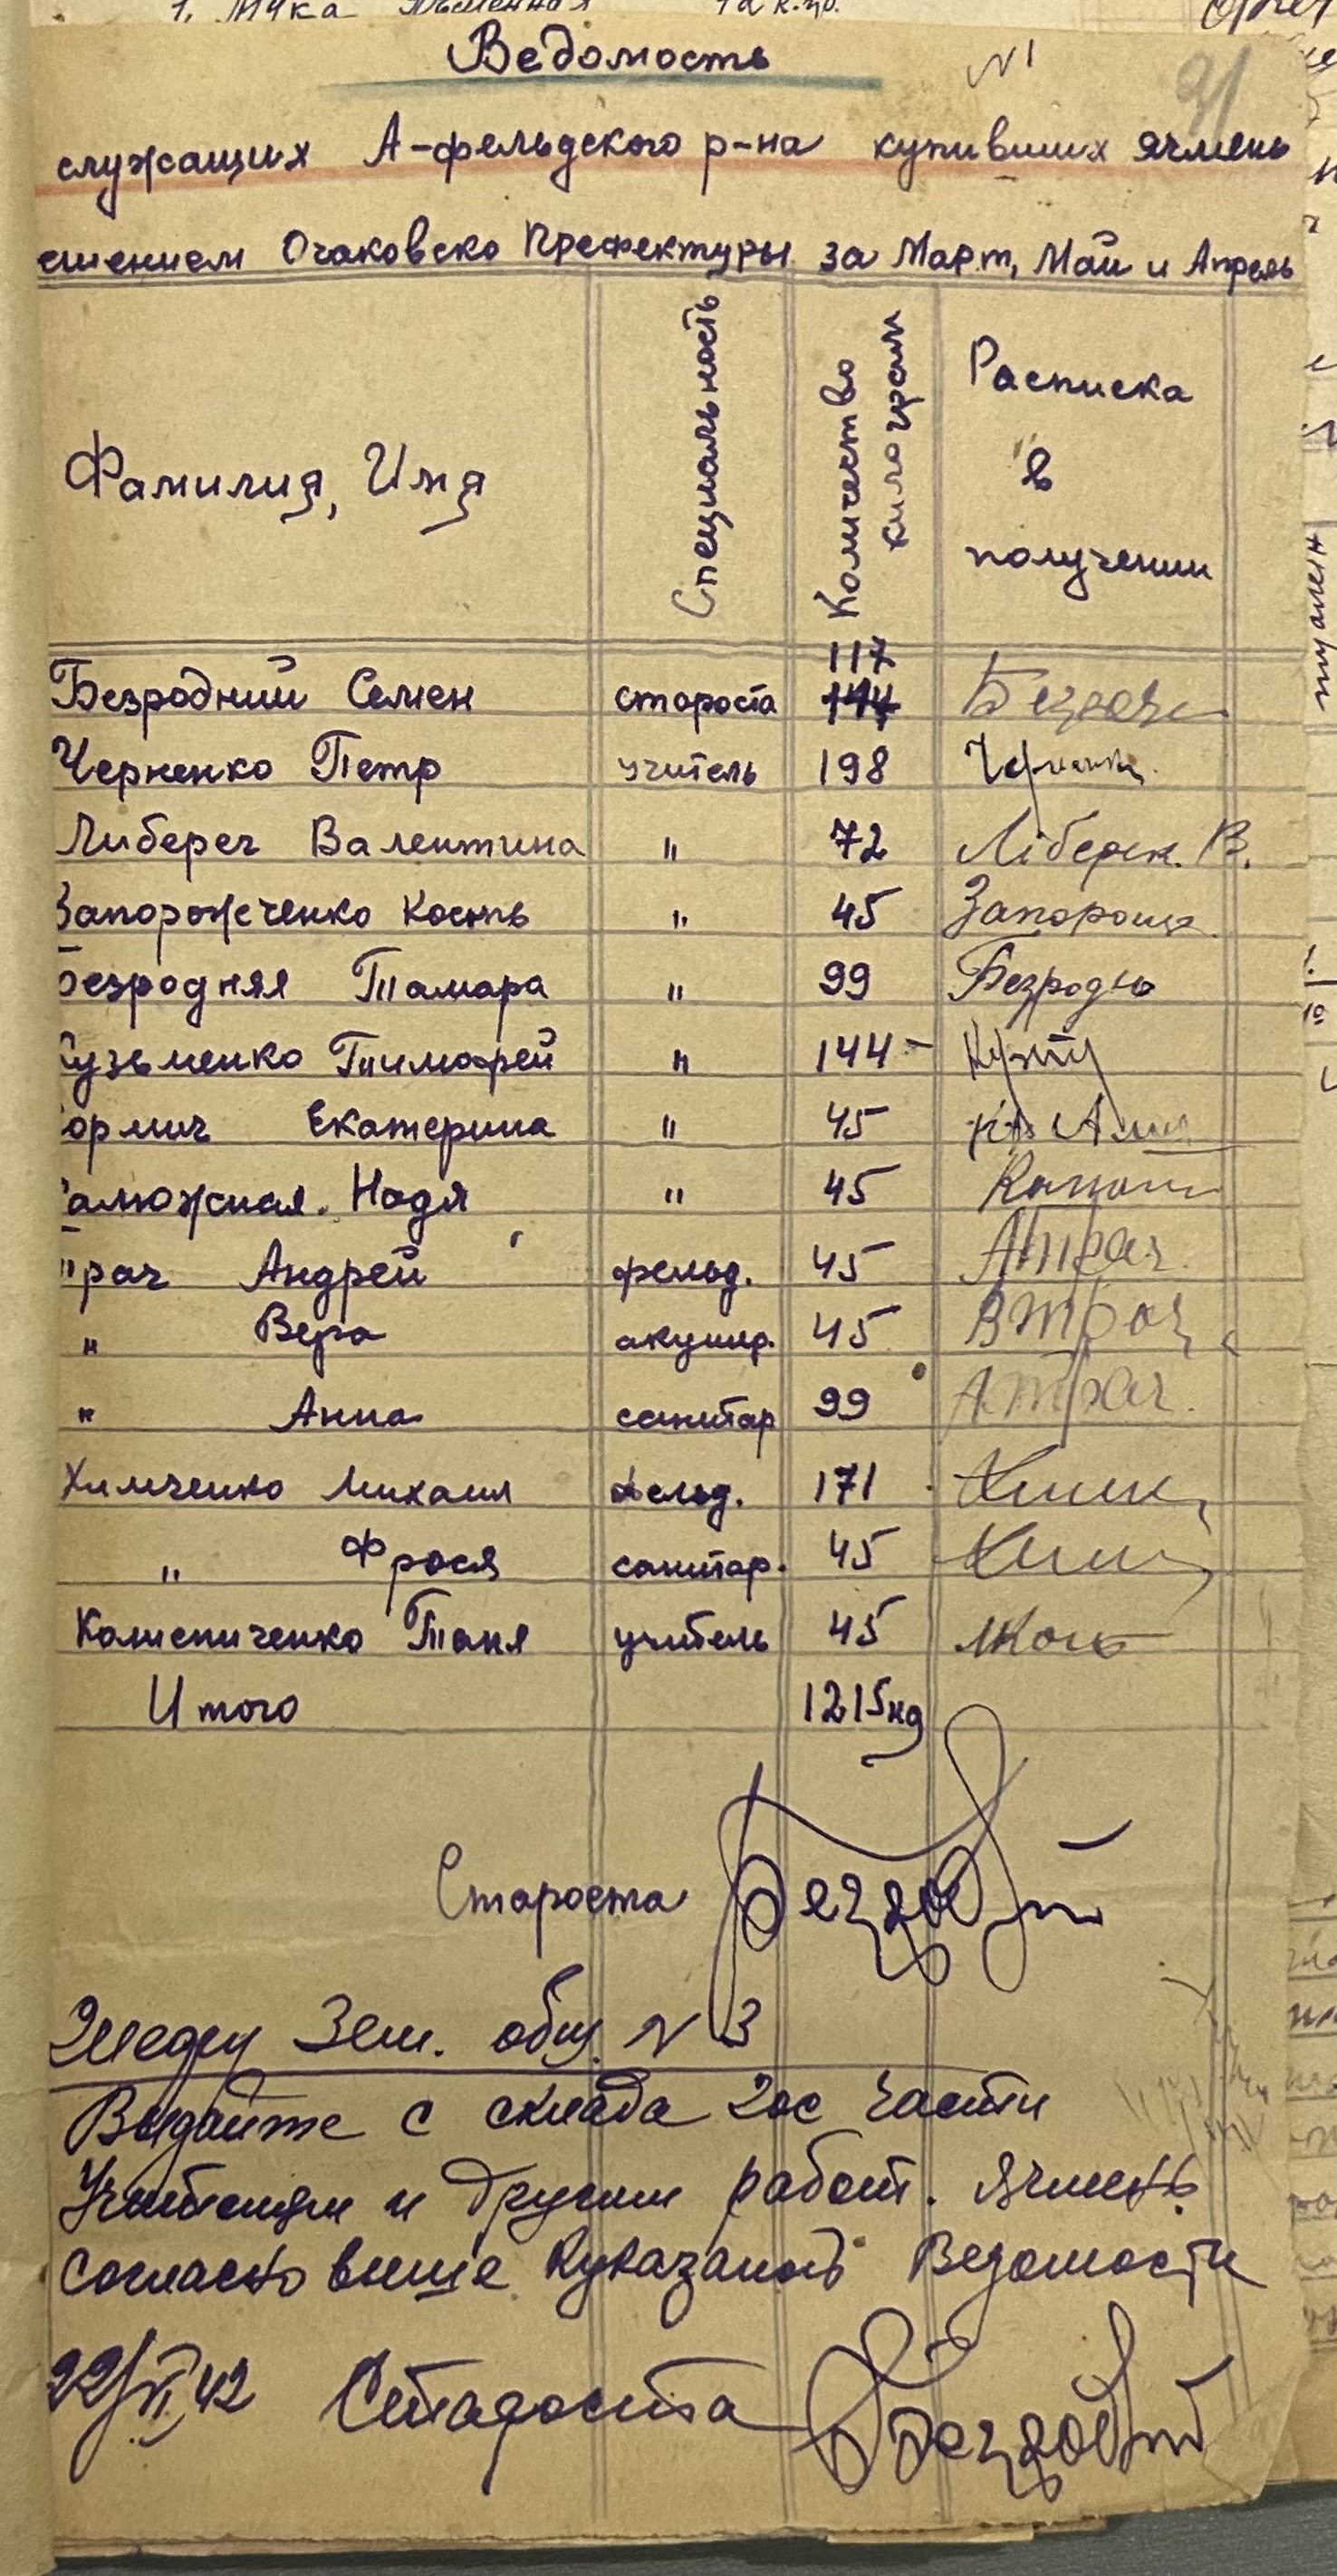 1. Мука
Ведомость N1
91
служащих А-фельдского р-на купивших ячмень
ешением Очаковско Префектуры за Март, Май и Апрель
Фамилия, Имя
Специальность
Количество килограм
Расписка
в
получении
117
Безродний Семен староста 144
Черненко Петр учитель 198
Либереч Валентина " 72 Ліберек. В.
Запорожченко Кость " 45
безродняя Тамара " 99
Кузьменко Тимофей " 144-
ормич Екатерина " 45
алюжная. Надя " 45
рач Андрей фельд. 45 А Трач.
" Вера акушер. 45 В Трач
" Анна санитар 99 А Трач.
Химченко Михаил фельд. 171
" Фрося санитар. 45
Колисниченко Таня учитель 45
Итого 1215 кг
Староста
Зем. общ. N 3
Выдайте с склада гос части
Учителям и другим работ. ячмень
согласно выше Куказаной Ведомости
22/VI 42 Староста